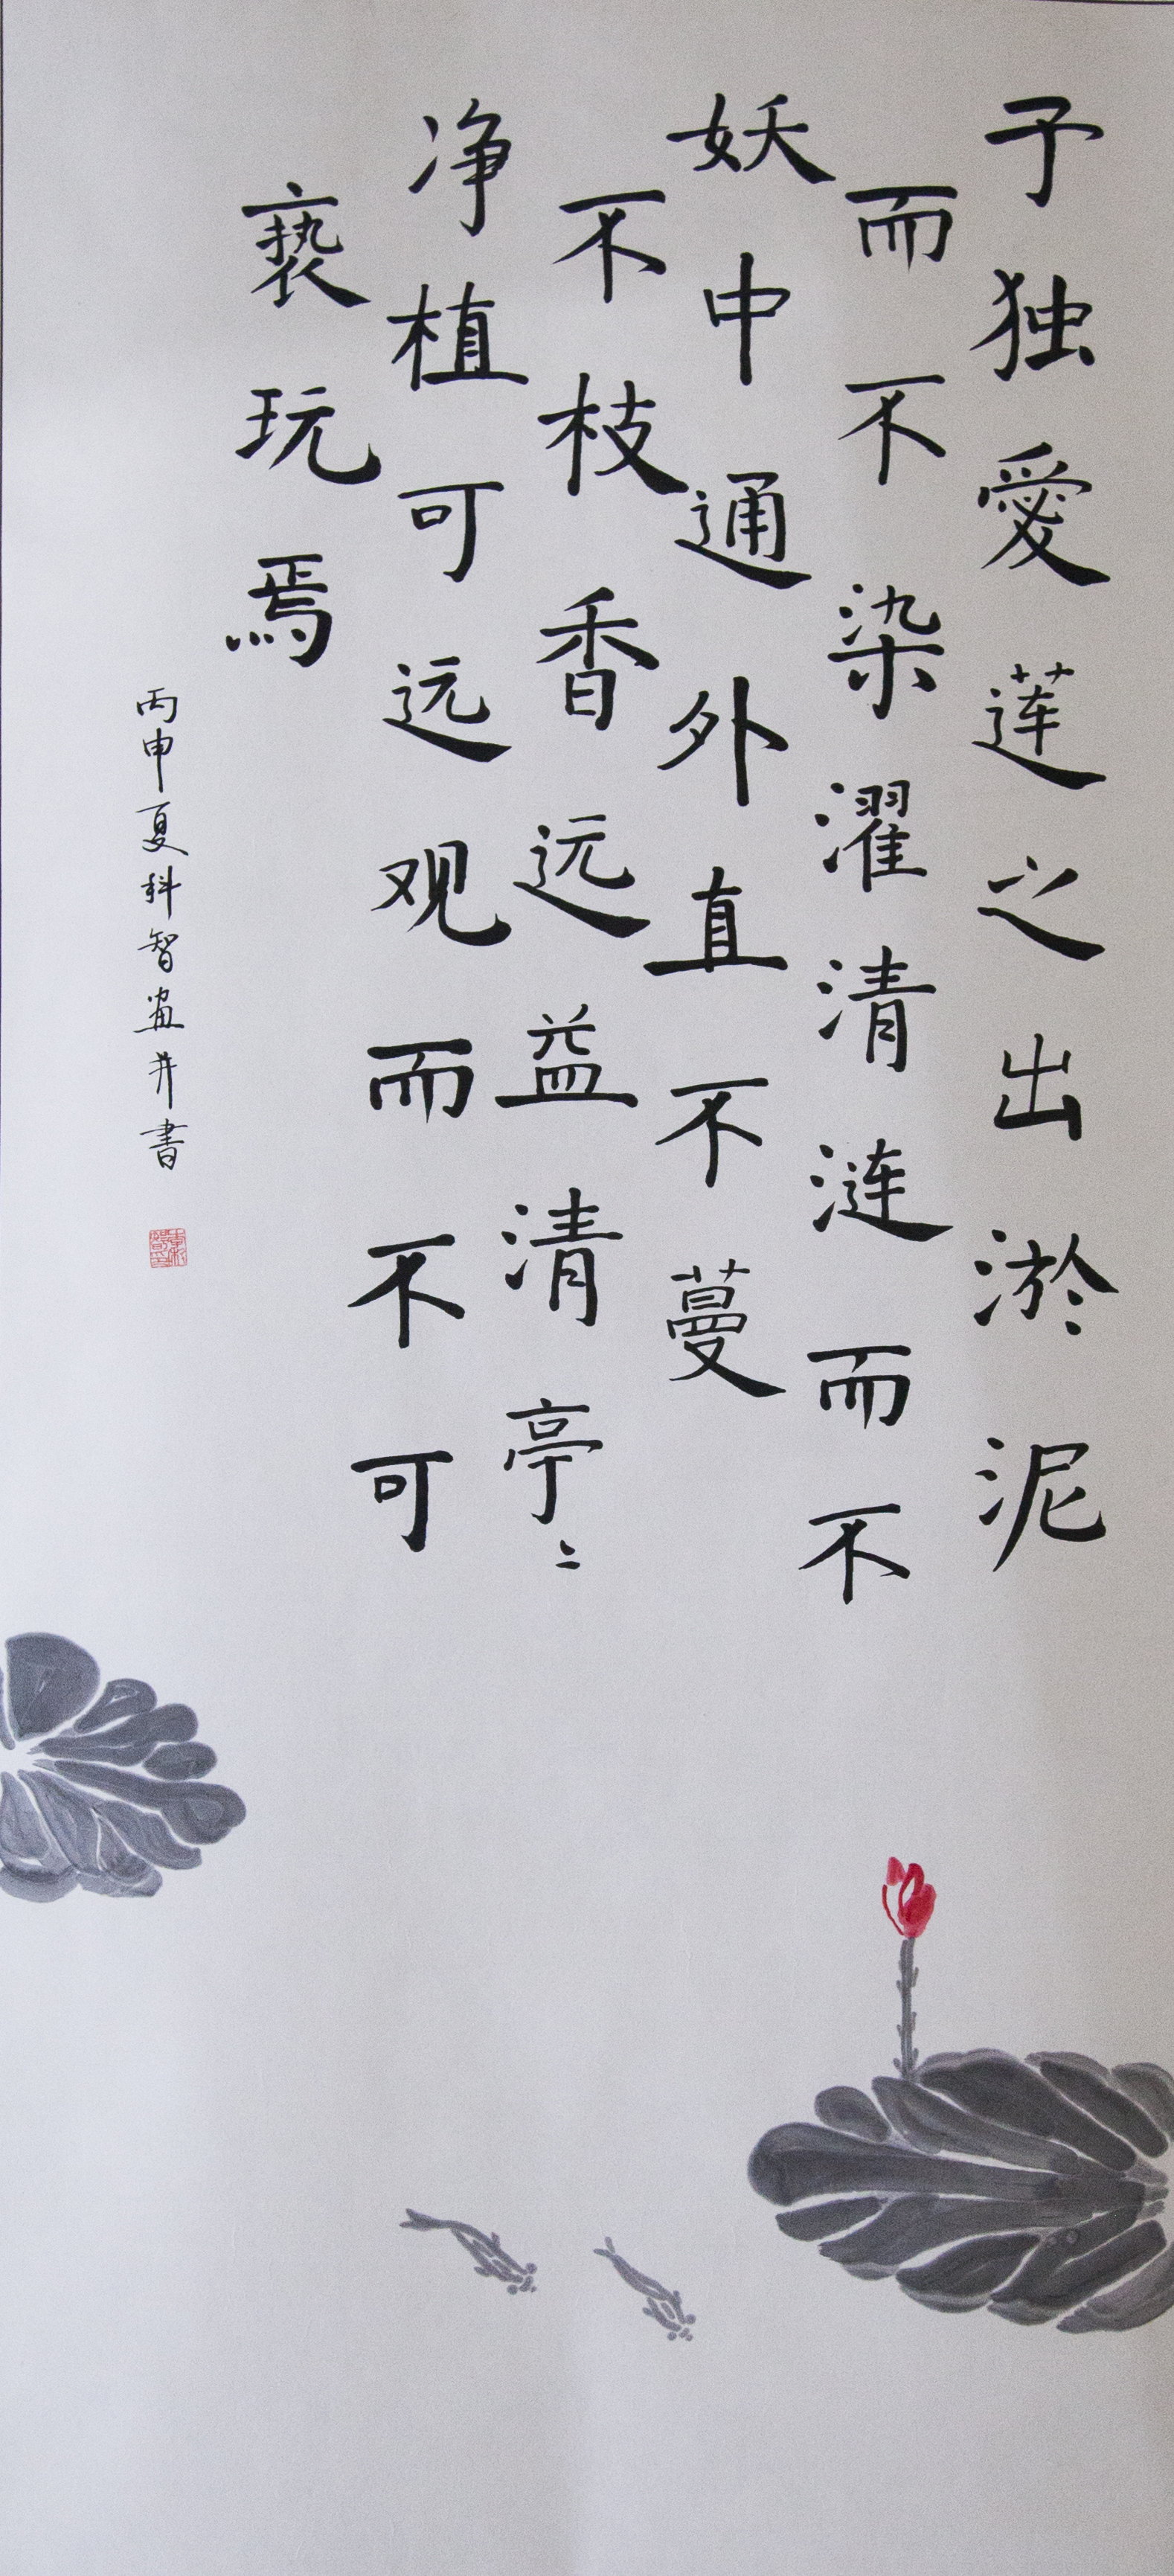 予独愛莲之出淤泥
而不染濯清涟而不
妖中通外直不蔓
不枝香远益清亭〻
净植可远观而不可
亵玩焉
丙申夏科智画并書